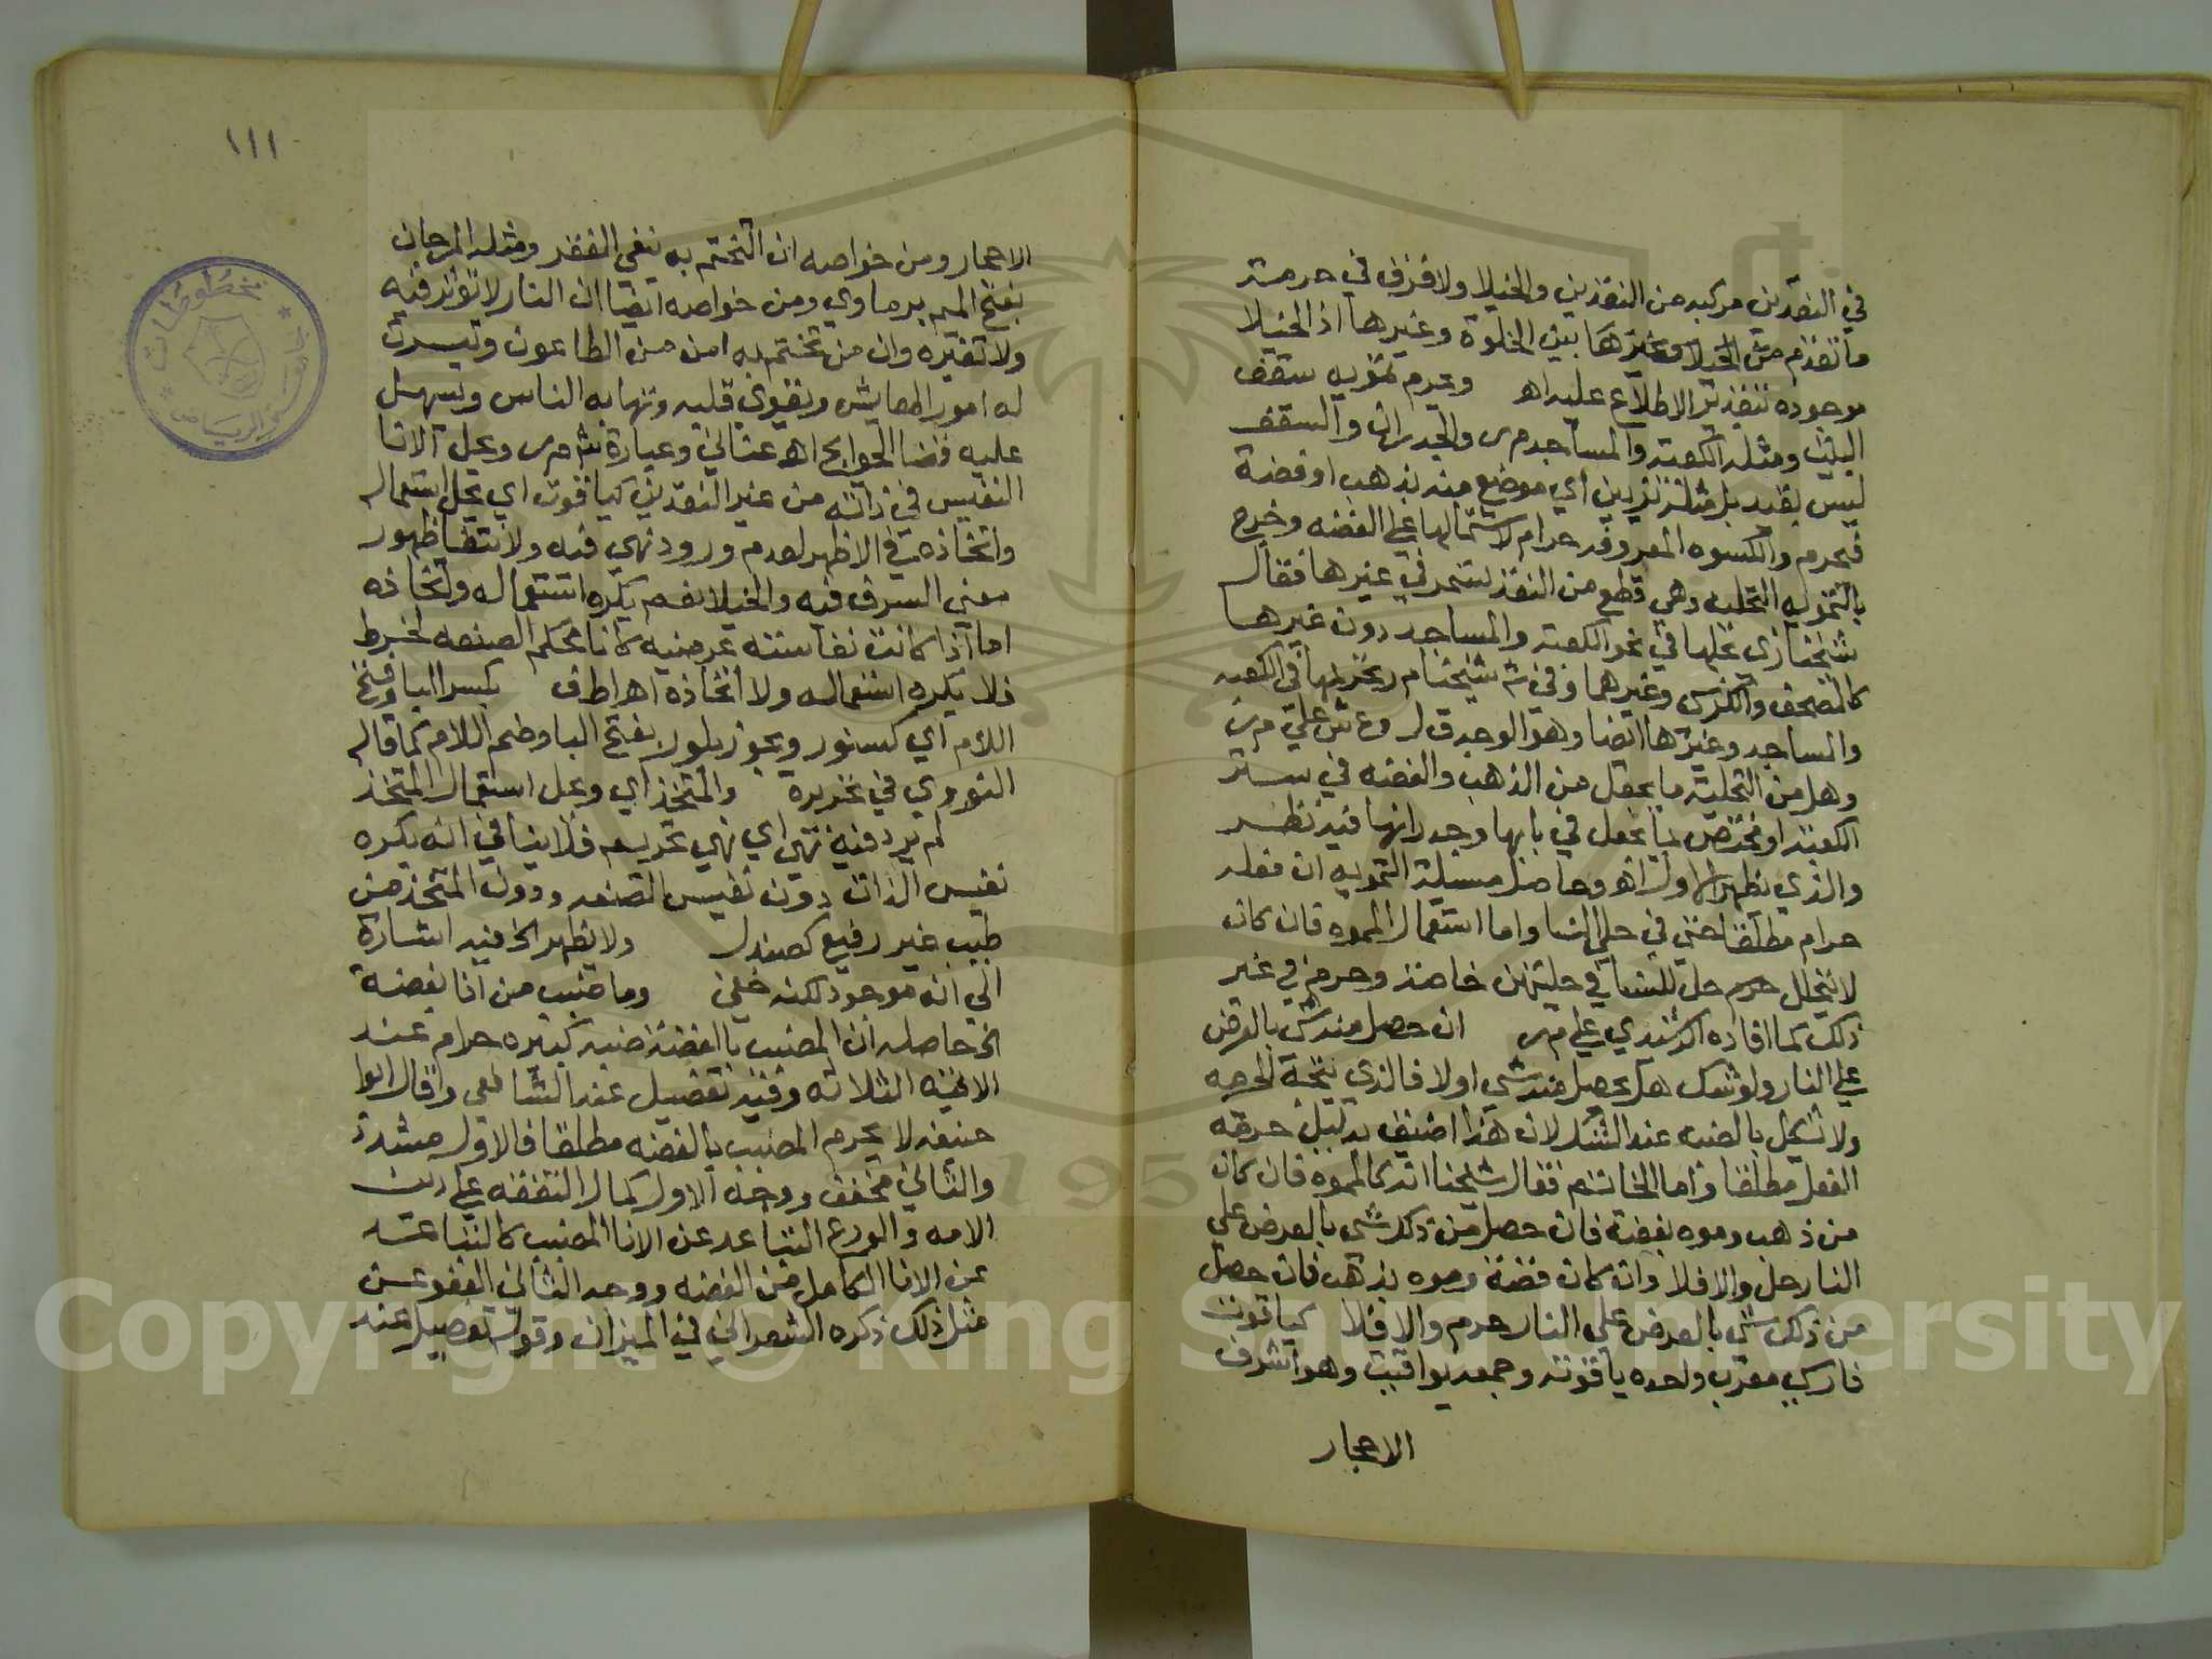 في النقدين مركبه من النقدين والخيلا ولا فرق في حرمته
ما تقدم من الخيلا وغيرها بين الخلوة وغيرها اذ الخيلا
موجوده بتقدير الاطلاع عليه اه ويحرم تمويه سقف
البيت ومثله الكعبة والمساجد م ر والجدران والسقف
ليس بقيد بل مثله تزيين اي موضع منه بذهب او فضة
فيحرم والكسوه المعروفه حرام لاشتمالها على الفضه وخرج
بالتمويه التحليه وهي قطع من النقد تسمر في غيرها فقال
شيخنا زي بحلها في نحو الكعبة والمساجد دون غيرها
كالمصحف والكرسي وغيرهما وفي ش شيخنا م ر بحرمتها في الكعبه
والمساجد وغيرها ايضا وهو الوجه ق ل و ع ش على م ر
وهل من التحلية ما يجعل من الذهب والفضه في ستر
الكعبة او مختص بما يجعل في بابها وجدرانها فيه نظر
والذي يظهر الاول اه وحاصل مسئلة التمويه ان فعله
حرام مطلقا حتى في حلي النسا واما استعمال المموه فان كان
لا يتحلل حل للنسا في حليتهن خاصة وحرم في غير
ذلك كما افاده الرشيدي على م ر ان حصل منه شي بالعرض
على النار ولو شك هل يحصل منه شي اولا فالذي يتجه الحرمه
ولا تشكل بالضبه عند الشك لان هذا اضيق بدليل حرمة
الفعل مطلقا واما الخاتم فقال شيخنا انه كالمموه فان كان
من ذهب وموه بفضة فان حصل من ذلك شي بالعرض على
النار حل والا فلا وان كان فضة وموه بذهب فان حصل
من ذلك شي بالعرض على النار حرم والا فلا كياقوت
فارسي معرب واحده ياقوتة وجمعه يواقيت وهو اشرف
الاحجار
١١١
الاحجار ومن خواصه ان التختم به ينفي الفقر ومثله المرجان
بفتح الميم برماوي ومن خواصه ايضا ان النار لا تؤثر فيه
ولا تغيره وان من تختم به امن من الطاعون وتيسرت
له امور المعايش ويقوي قلبه وتهابه الناس ويسهل
عليه قضا الحوايج اه عناني وعبارة ش م ر ويحل الانا
النفيس في ذاته من غير النقدين كياقوت اي يحل استعماله
واتخاذه في الاظهر لعدم ورود نهي فيه ولانتفا ظهور
معنى السرف فيه والخيلا نعم يكره استعماله واتخاذه
اما اذا كانت نفاسته عرضيه كانا محكم الصنعه لخرط
فلا يكره استعماله ولا اتخاذه اه اطف بكسر البا وفتح
اللام اي كسنور ويجوز بلور بفتح البا وضم اللام كما قاله
النووي في تحريره والمتخذ اي ويحل استعمال المتخذ
لم يرد فيه نهي اي نهي تحريم فلا ينافي انه يكره
نفيس الذات دون نفيس الصنعه ودون المتخذ من
طيب غير رفيع كصندل ولا يظهر الخ فيه اشارة
الى انه موجود لكنه خفي وما ضبب من انا بفضة
الخ حاصله ان المضبب بالفضة ضبه كبيره حرام عند
الايمه الثلاثه وفيه تفصيل عند الشافعي وقال ابوا
حنيفه لا يحرم المضبب بالفضه مطلقا فالاول مشدد
والثاني مخفف ووجه الاول كمال الشفقه على دين
الامه والورع التباعد عن الانا المضبب كالتباعد
عن الانا الكامل من الفضه ووجه الثاني العفو عن
مثل ذلك ذكره الشعراني في الميزان وقوله تفصيل عند
مخطوطات
الرياض
Copyright © King Saud University
1957